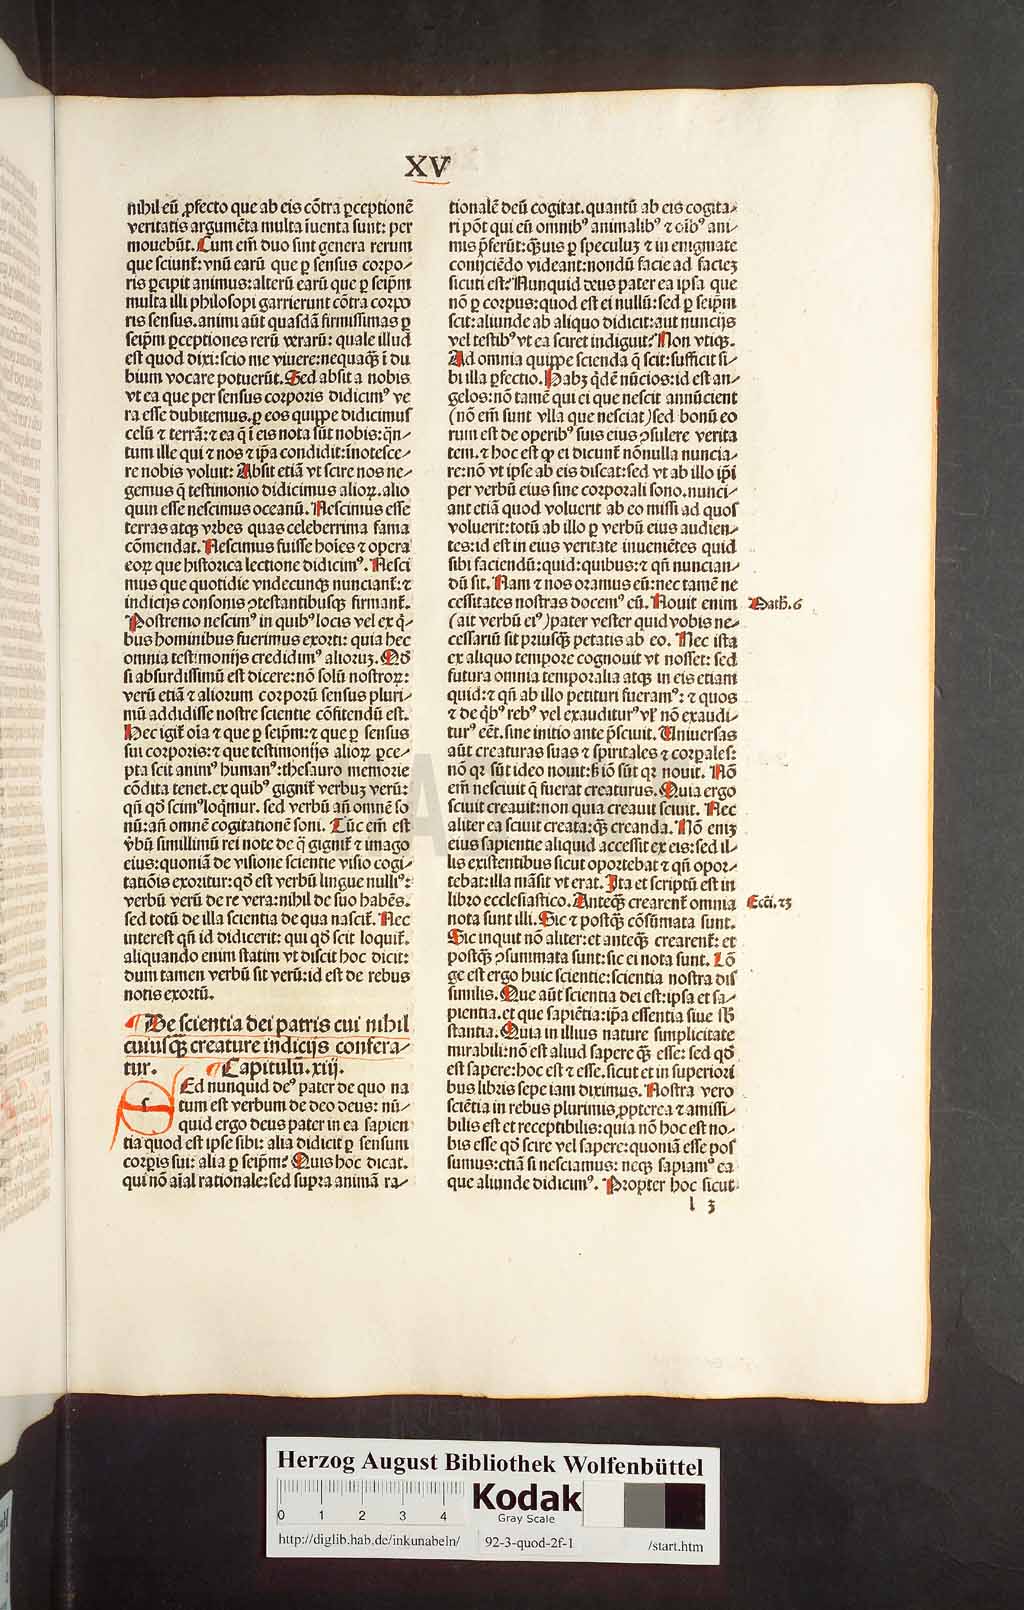 XV
nihil eū ꝓfecto que ab eis cōtra ꝑceptionē
veritatis argumēta multa iuenta sunt: per
mouebūt. Cum em̄ duo sint genera rerum
que sciunt̄: vnū earū que ꝑ sensus corpo⸗
ris ꝑcipit animus: alterū earū que ꝑ seip̄m
multa illi philosopi garrierunt cōtra corpo
ris sensus. animi aūt quasdā firmissimas ꝑ
seip̄m ꝑceptiones rerū verarū: quale illud
est quod dixi: scio me viuere: nequaq̄ꝫ ī du
bium vocare potuerūt. Sed absit a nobis
vt ea que per sensus corporis didicimꝰ ve
ra esse dubitemus. ꝑ eos quippe didicimus
celū ⁊ terrā: ⁊ ea q̄ ī eis nota sūt nobis: q̄n⸗
tum ille qui ⁊ nos ⁊ ip̄a condidit: īnotesce⸗
re nobis voluit: Absit etiā vt scire nos ne⸗
gemus q̄ testimonio didicimus alioꝝ. alio
quin esse nescimus oceanū. Nescimus esse
terras atqꝫ vrbes quas celeberrima fama
cōmendat. Nescimus fuisse hoīes ⁊ opera
eoꝝ que historica lectione didicimꝰ. Nesci
mus que quotidie vndecunqꝫ nunciant̄: ⁊
indicijs consonis ꝯtestantibusqꝫ firmant̄.
Postremo nescimꝰ in quibꝰ locis vel ex q̄⸗
bus hominibus fuerimus exorti: quia hec
omnia testimonijs credidimꝰ alioruꝫ. Qd̄
si absurdissimū est dicere: nō solū nostroꝝ:
verū etiā ⁊ aliorum corporū sensus pluri⸗
mū addidisse nostre scientie cōfitendū est.
Hec igit̄ oīa ⁊ que ꝑ seip̄m: ⁊ que ꝑ sensus
sui corporis: ⁊ que testimonijs alioꝝ ꝑce⸗
pta scit animꝰ humanꝰ: thesauro memorie
cōdita tenet. ex quibꝰ gignit̄ verbuꝫ verū:
qn̄ qd̄ scimꝰ loq̄mur. sed verbū an̄ omnē so
nū: an̄ omnē cogitationē soni. Tūc em̄ est
v̄bū simillimū rei note de q̄ gignit̄ ⁊ imago
eius: quoniā de visione scientie visio cogi⸗
tatiōis exoritur: qd̄ est verbū lingue nulliꝰ:
verbū verū de re vera: nihil de suo habēs.
sed totū de illa scientia de qua nascit̄. Nec
interest qn̄ id didicerit: qui qd̄ scit loquit̄.
aliquando enim statim vt discit hoc dicit:
dum tamen verbū sit verū: id est de rebus
notis exortū.
¶ De scientia dei patris cui nihil
cuiusq̄ꝫ creature indicijs confera⸗
tur. ¶ Capitulū. xiij.
SEd nunquid deꝰ pater de quo na
tum est verbum de deo deus: nū⸗
quid ergo deus pater in ea sapien
tia quod est ipse sibi: alia didicit ꝑ sensum
corꝑis sui: alia ꝑ seip̄m? Quis hoc dicat.
qui nō aīal rationale: sed supra animā ra⸗
tionalē deū cogitat. quantū ab eis cogita⸗
ri pōt qui eū omnibꝰ animalibꝰ ⁊ oībꝰ ani⸗
mis p̄ferūt: q̄ꝫuis ꝑ speculuꝫ ⁊ in enigmate
conijciēdo videant: nondū facie ad facieꝫ
sicuti est? Nunquid deus pater ea ipsa que
nō ꝑ corpus: quod est ei nullū: sed ꝑ seip̄m
scit: aliunde ab aliquo didicit: aut nuncijs
vel testibꝰ vt ea sciret indiguit? Non vtiqꝫ.
Ad omnia quippe scienda q̄ scit: sufficit si⸗
bi illa ꝑfectio. Habꝫ q̄dē nūcios: id est an⸗
gelos: nō tamē qui ei que nescit annūcient
(nō em̄ sunt vlla que nesciat) sed bonū eo
rum est de operibꝰ suis eius ꝯsulere verita
tem. ⁊ hoc est qꝫ ei dicunt̄ nōnulla nuncia⸗
re: nō vt ipse ab eis discat: sed vt ab illo ip̄i
per verbū eius sine corporali sono. nunci⸗
ant etiā quod voluerit ab eo missi ad quos
voluerit: totū ab illo ꝑ verbū eius audien⸗
tes: id est in eius veritate inueniētes quid
sibi faciendū: quid: quibus: ⁊ qn̄ nuncian⸗
dū sit. Nam ⁊ nos oramus eū: nec tamē ne
cessitates nostras docemꝰ eū. Nouit enim
(ait verbū eiꝰ) pater vester quid vobis ne⸗
cessariū sit priusq̄ꝫ petatis ab eo. Nec ista
ex aliquo tempore cognouit vt nosset: sed
futura omnia temporalia atqꝫ in eis etiam
quid: ⁊ qn̄ ab illo petituri fueramꝰ: ⁊ quos
⁊ de q̄bꝰ rebꝰ vel exauditurꝰ vl̄ nō exaudi⸗
turꝰ eēt. sine initio ante p̄sciuit. Uniuersas
aūt creaturas suas ⁊ spiritales ⁊ corꝑales:
nō qꝛ sūt ideo nouit: sꝫ iō sūt qꝛ nouit. Nō
em̄ nesciuit q̄ fuerat creaturus. Quia ergo
sciuit creauit: non quia creauit sciuit. Nec
aliter ea sciuit creata: q̄ꝫ creanda. Nō eniꝫ
eius sapientie aliquid accessit ex eis: sed il⸗
lis existentibus sicut oportebat ⁊ qn̄ opor⸗
tebat: illa māsit vt erat. Ita et scriptū est in
libro ecclesiastico. Anteq̄ꝫ crearent̄ omnia
nota sunt illi. Sic ⁊ postq̄ꝫ cōsūmata sunt.
Sic inquit nō aliter: et anteq̄ꝫ crearent̄: et
postq̄ꝫ ꝯsummata sunt: sic ei nota sunt. Lō
ge est ergo huic scientie: scientia nostra dis
similis. Que aūt scientia dei est: ipsa et sa⸗
pientia. et que sapiētia: ip̄a essentia siue sb̄
stantia. Quia in illius nature simplicitate
mirabili: nō est aliud sapere q̄ꝫ esse: sed qd̄
est sapere: hoc est ⁊ esse. sicut et in superiori
bus libris sepe iam diximus. Nostra vero
sciētia in rebus plurimis ꝓpterea ⁊ amissi⸗
bilis est et receptibilis: quia nō hoc est no⸗
bis esse qd̄ scire vel sapere: quoniā esse pos
sumus: etiā si nesciamus: neqꝫ sapiamꝰ ea
que aliunde didicimꝰ. Propter hoc sicut
Math̄. 6
Ecci̅. 23
l 3
Herzog August Bibliothek Wolfenbüttel
0 1 2 3 4
Kodak
Gray Scale
http://diglib.hab.de/inkunabeln/ 92-3-quod-2f-1 /start.htm